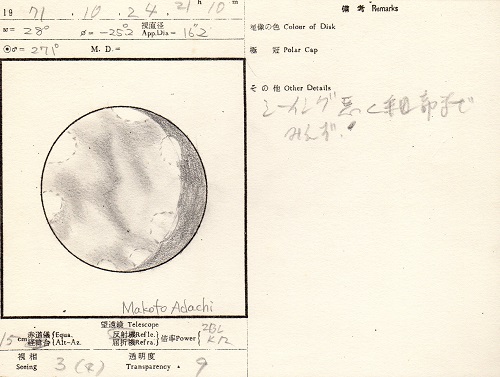 1971.10.24.21h10m
ω= 28° φ= -25°2 視直径 App.Dia= 16″2
☉♂= 271° M. D.=
Makoto Adachi
望遠鏡 Telescope
15cm 赤道儀 Equa. 経緯台 Alt-Az. 反射機 Refle. 屈折機 Refra. 倍率 Power
視相 Seeing 3 透明度 Transparency 9
備考 Remarks
星像の色 Colour of Disk
極冠 Polar Cap
その他 Other Details
シーイング悪く細部まで
みえず.